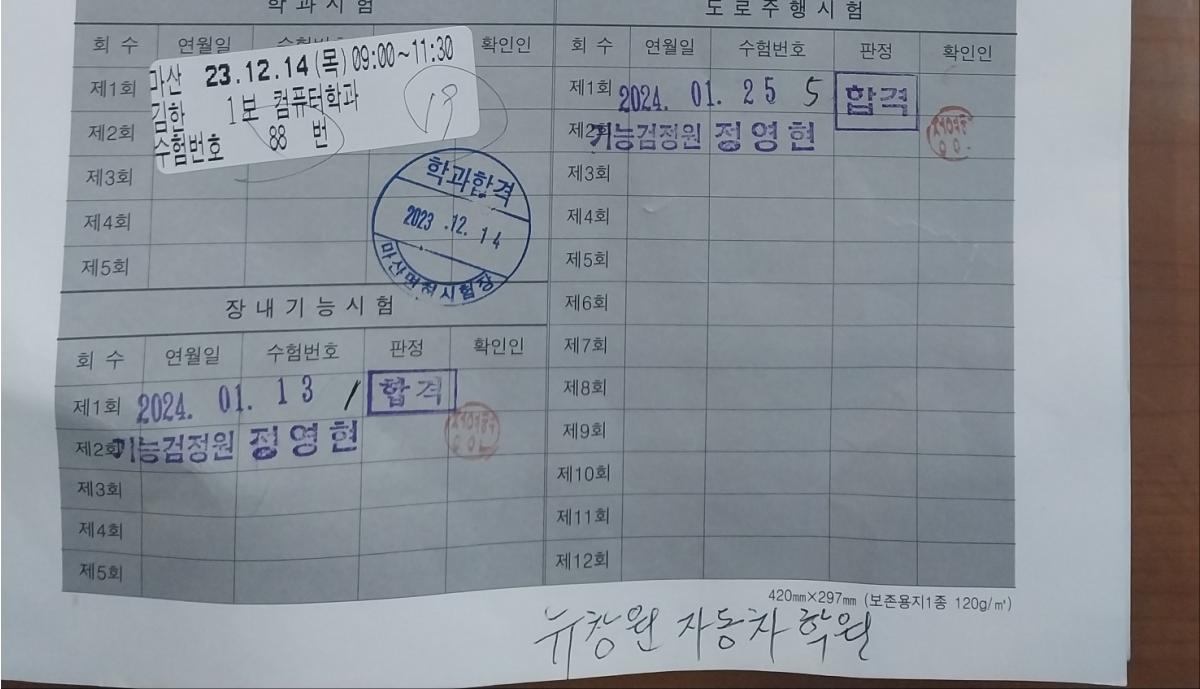 학과시험
회 수 연월일 수험번호 확인인
마산 23.12.14(목) 09:00~11:30
김한 1보 컴퓨터학과
수험번호 88 번
19
제1회
제2회
제3회
제4회
제5회
학과합격
2023 .12. 14
마산면허시험장
장내기능시험
회 수 연월일 수험번호 판정 확인인
제1회 2024. 01. 13 / 합격
제2회 기능검정원 정영현
제3회
제4회
제5회
도로주행시험
회 수 연월일 수험번호 판정 확인인
제1회 2024. 01. 25 5 합격
제2회 기능검정원 정영현
제3회
제4회
제5회
제6회
제7회
제8회
제9회
제10회
제11회
제12회
420㎜×297㎜ (보존용지1종 120g/㎡)
뉴창원 자동차 학원